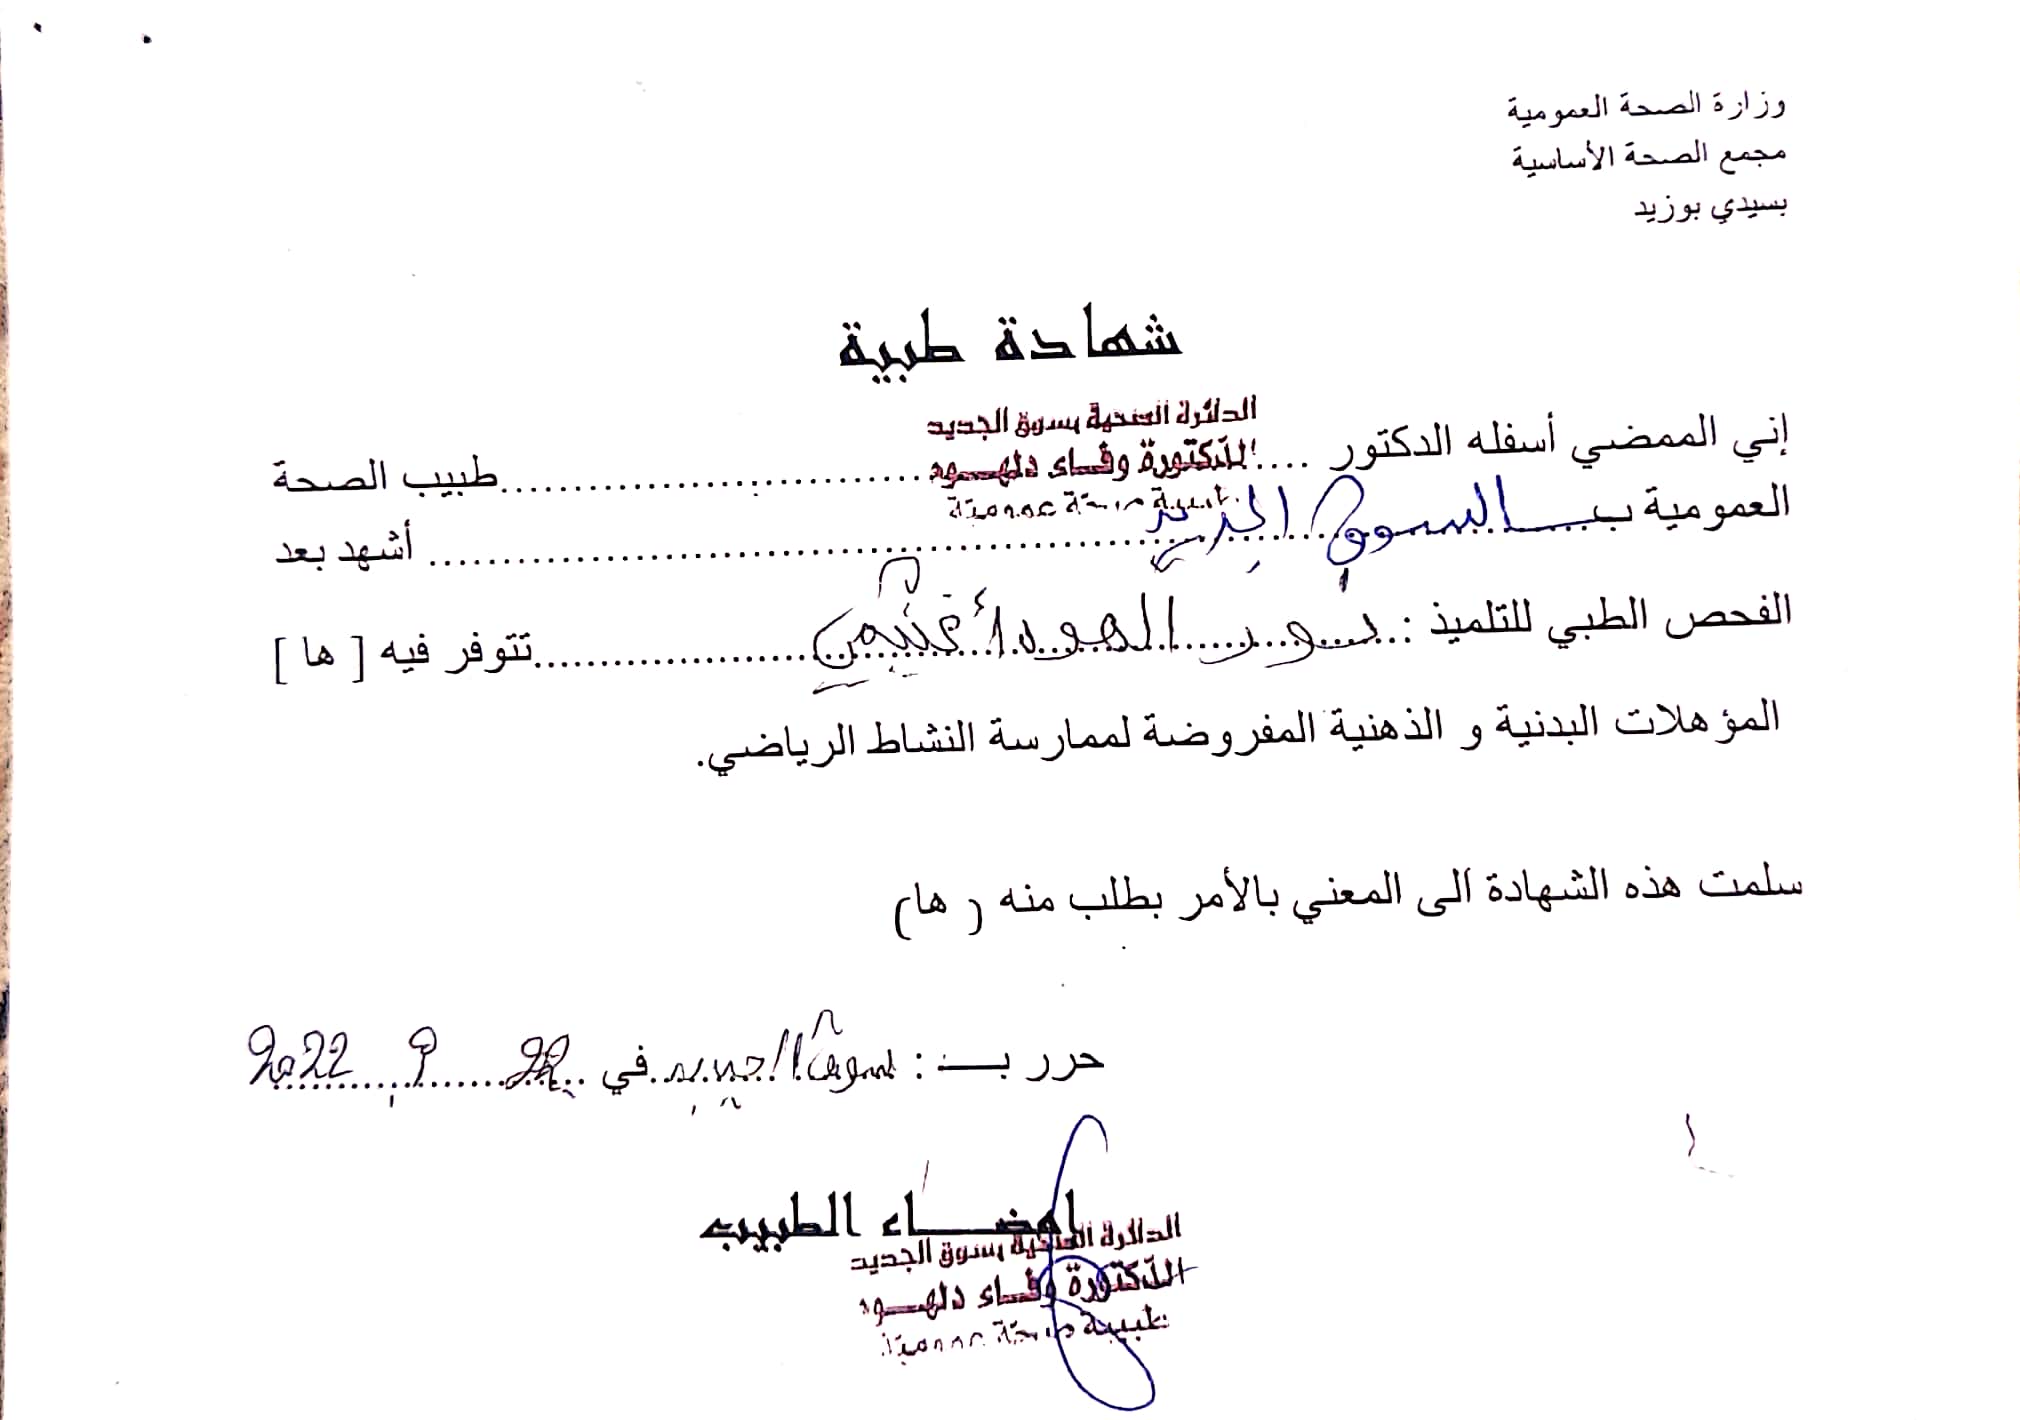 وزارة الصحة العمومية
مجمع الصحة الأساسية
بسيدي بوزيد
شهادة طبية
الدائرة الصحية بسوق الجديد
إني الممضي أسفله الدكتور .... الدكتورة وفاء دلهـــود ............................ طبيب الصحة
طبيبة صحة عمومية
العمومية بـ السوق الجديد ............................ أشهد بعد
الفحص الطبي للتلميذ : نور الهدى ............................ تتوفر فيه [ ها ]
المؤهلات البدنية و الذهنية المفروضة لممارسة النشاط الرياضي.
سلمت هذه الشهادة الى المعني بالأمر بطلب منه ( ها)
حرر بـ : سوق الجديد في 22 9 2022
إمضــــاء الطبيب
الدائرة الصحية بسوق الجديد
الدكتورة وفاء دلهـــود
طبيبة صحة عمومية